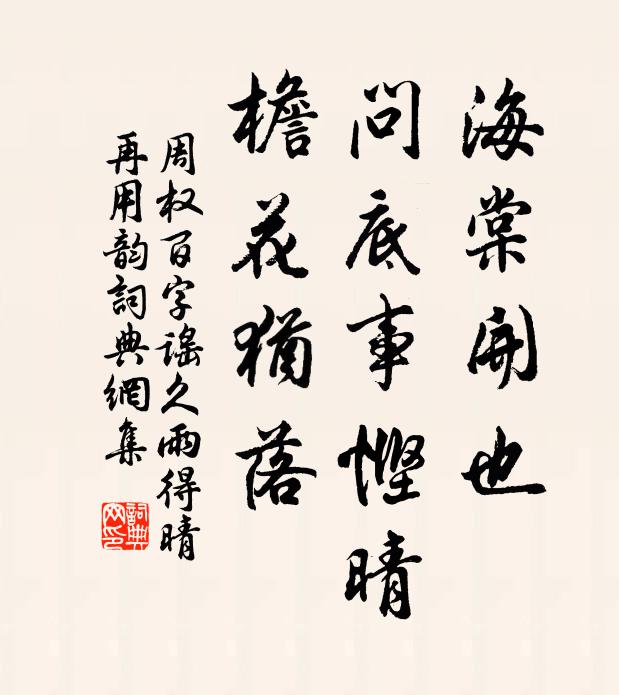 海棠開也
問底事慳晴
檐花猶落
周权百字謠久雨得晴
再用韵詞典網集
詞典
网印